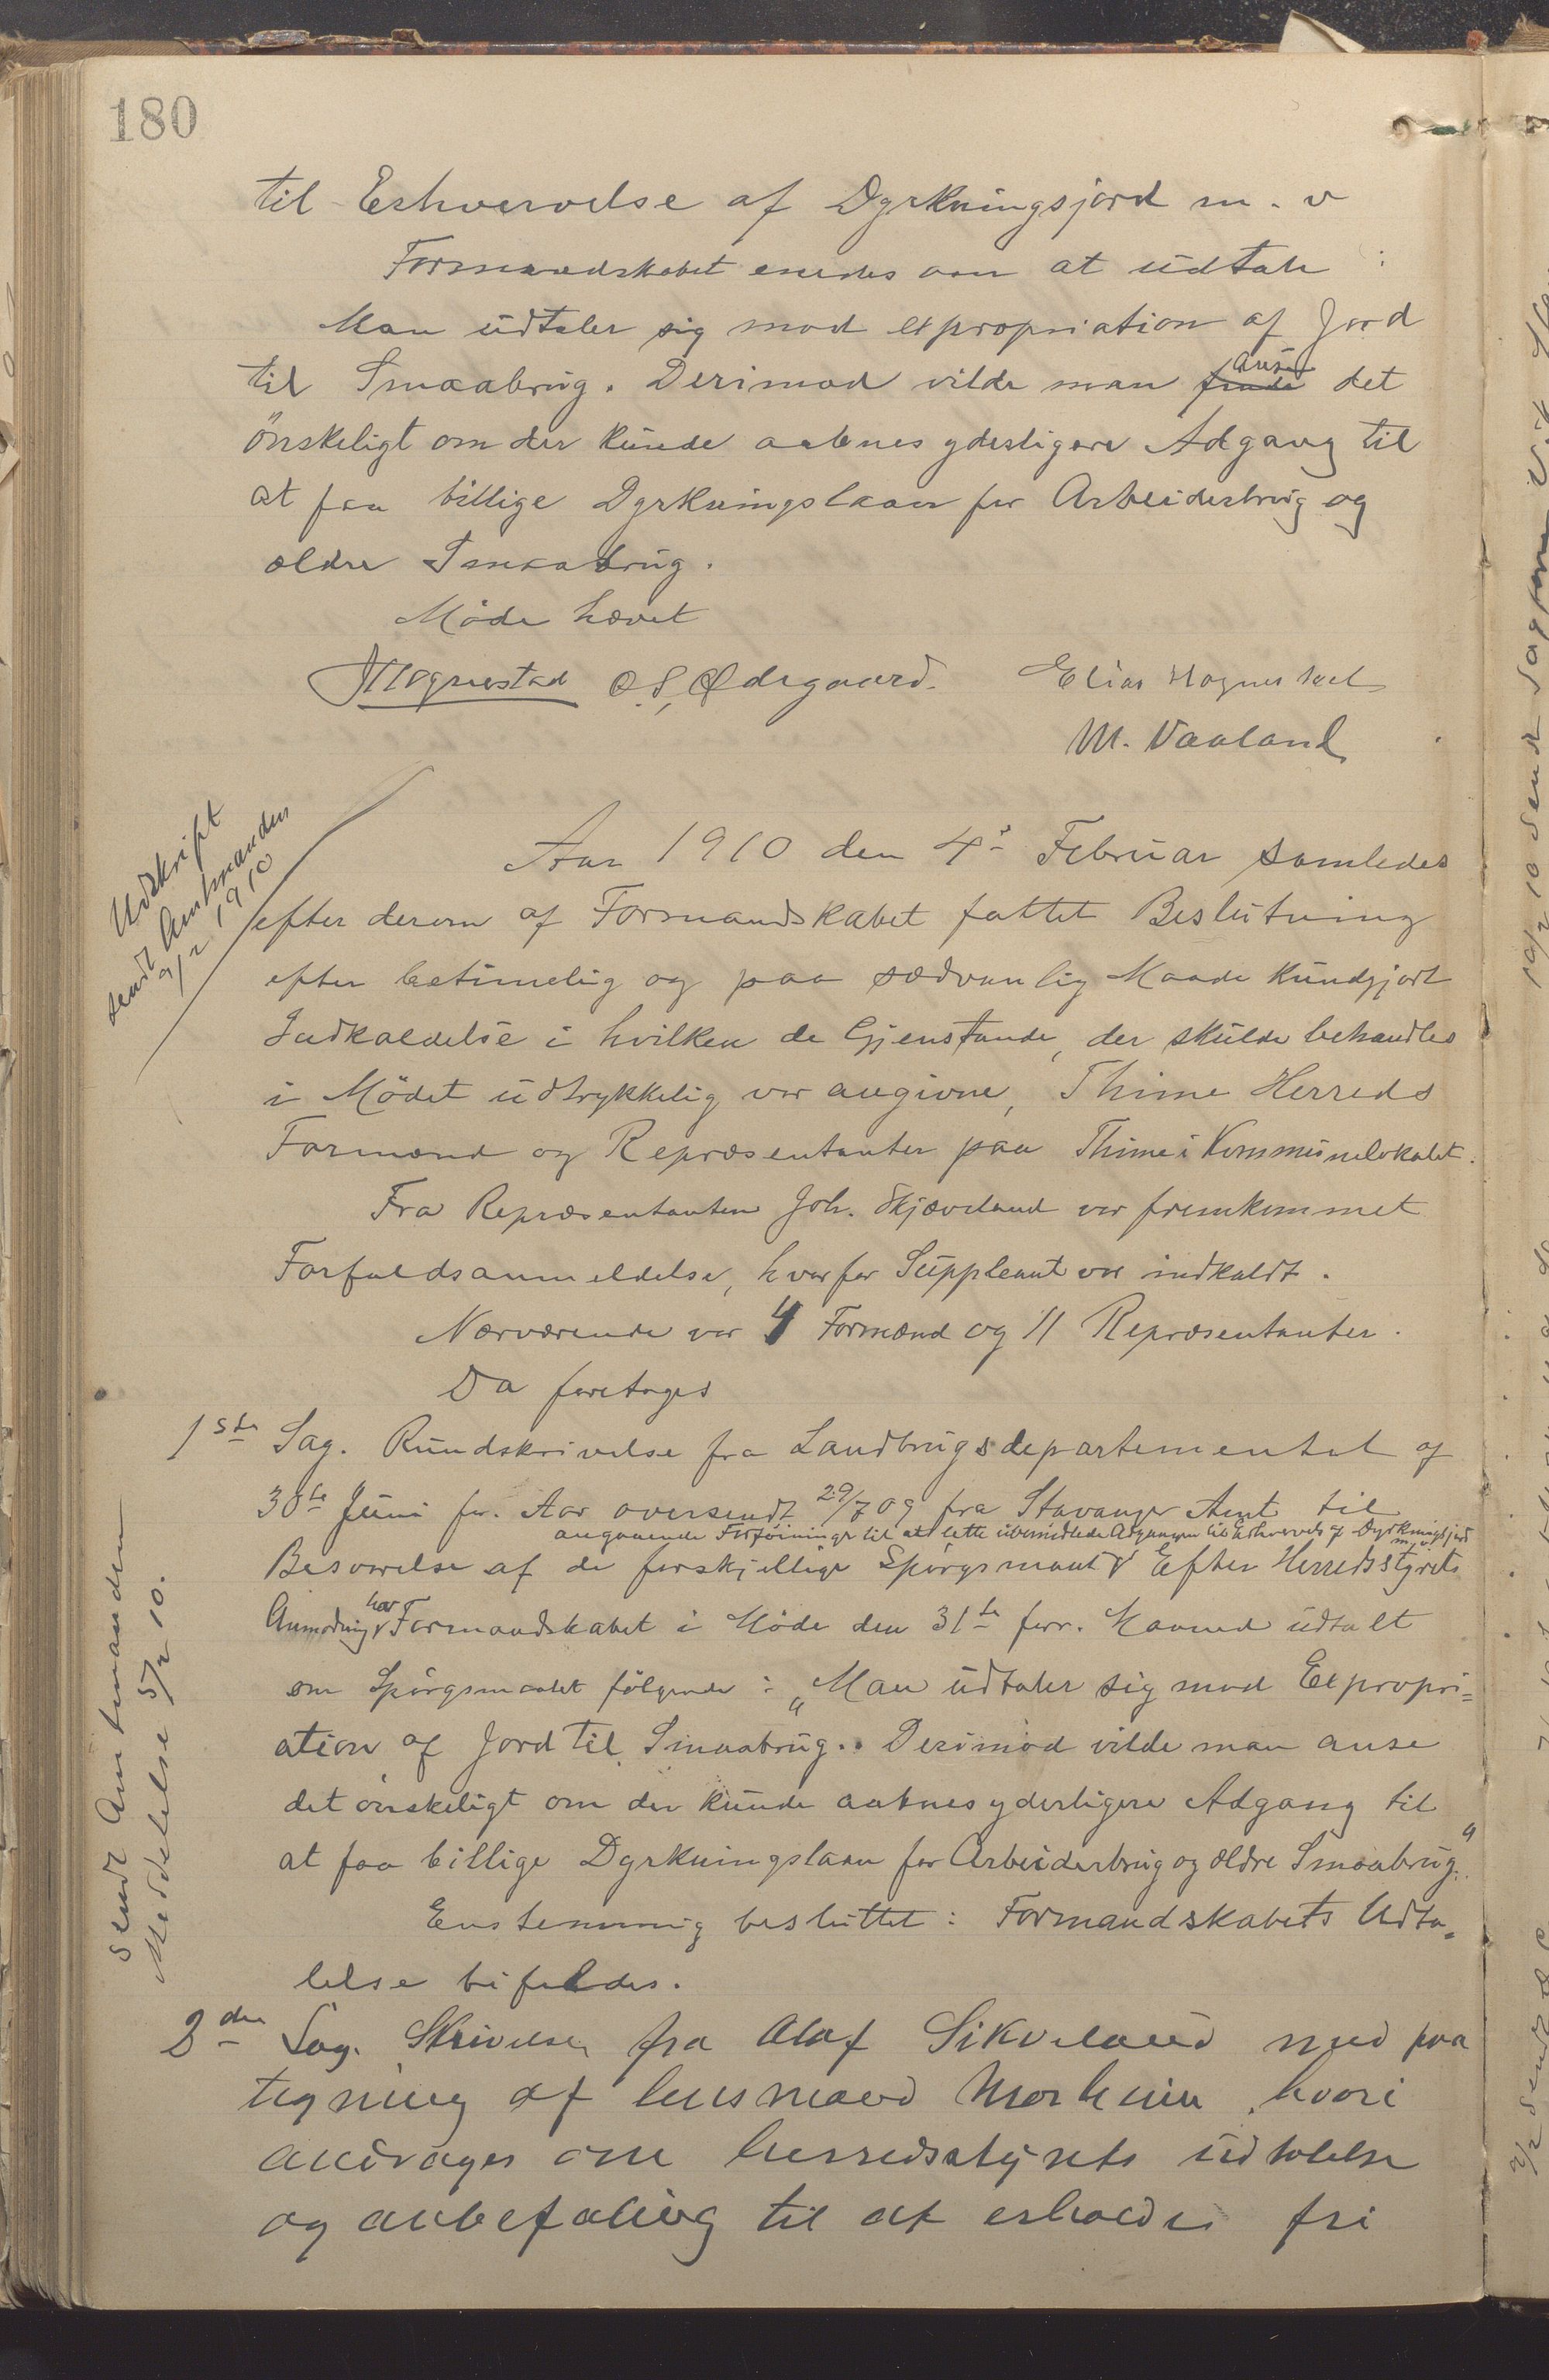 180
til Erhvervelse af Dyrkningsjord m. v
Formandskabet enedes om at udtale :
Man udtaler sig mod expropriation af Jord
til Smaabrug. Derimod vilde man finde anse det
ønskeligt om der kunde aabnes yderligere Adgang til
at faa billige Dyrkningslaan for Arbeiderbrug og
ældre Smaabrug.
Møde hævet
Hognestad O. S. Ødegaard. Elias Hognestad
M. Vaaland
Udskrift
sendt Amtmanden
9/2 1910
Aar 1910 den 4de Februar samledes
efter derom af Formandskabet fattet Beslutning
efter betimelig og paa sædvanlig Maade kundgjort
Indkaldelse i hvilken de Gjenstande, der skulde behandles
i Mødet udtrykkelig var angivne, Thime Herreds
Formænd og Repræsentanter paa Thime i Kommunelokalet.
Fra Repræsentanten Joh. Skjæveland var fremkommet
Forfaldsanmeldelse, hvorfor Suppleant var indkaldt.
Nærværende var 4 Formænd og 11 Repræsentanter.
Da foretoges
1ste Sag. Rundskrivelse fra Landbrugsdepartementet af
30te Juni f. Aar oversendt 29/7 09 fra Stavanger Amt til
angaaende Forføininger til at lette ubemidlede Adgangen til Erhvervelse af Dyrkningsjord m. v.
Besvarelse af de forskjellige Spørgsmaal Efter Herredsstyrets
Anmodning har Formandskabet i Møde den 31te forr. Maaned udtalt
om Spørgsmaalet følgende : „Man udtaler sig mod Expropri=
ation af Jord til Smaabrug. Derimod vilde man anse
det ønskeligt om der kunde aabnes yderligere Adgang til
at faa billige Dyrkningslaan for Arbeiderbrug og ældre Smaabrug."
Enstemmig besluttet : Formandskabets Udta=
lelse bifaldes.
Sendt Amtmanden
Meddelelse 5/2 10.
2den Sag. Skrivelse fra Olaf Sikveland med paa
tegning af lensmand Norheim hvori
andrages om herredsstyrets udtalelse
og anbefaling til at erholde fri